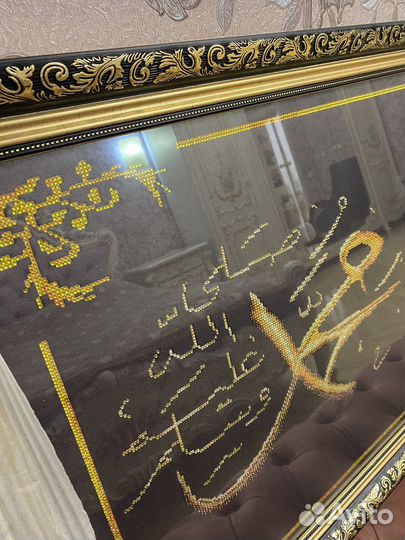 محمد
صلى
الله
عليه
وسلم
Avito